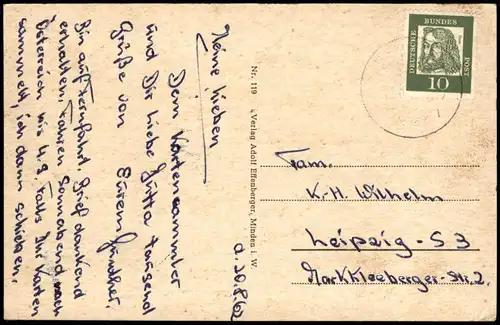 Meine Lieben
Dem Kartensammler
und Dir liebe Jutta tausend
Grüße von
Eurem Günther.
Bin auf Fernfahrt. Brief dankend
erhalten. Fahren Sonnabend nach
Österreich bis 4.9. Falls Ihr Karten
sammelt, ich dann schreiben.
d. 30.8.62
Nr. 119 Verlag Adolf Effenberger, Minden i. W.
DEUTSCHE
BUNDES
POST
10
Fam.
K.-H. Wilhelm
Leipzig - S 3
Markkleeberger-Str. 2.